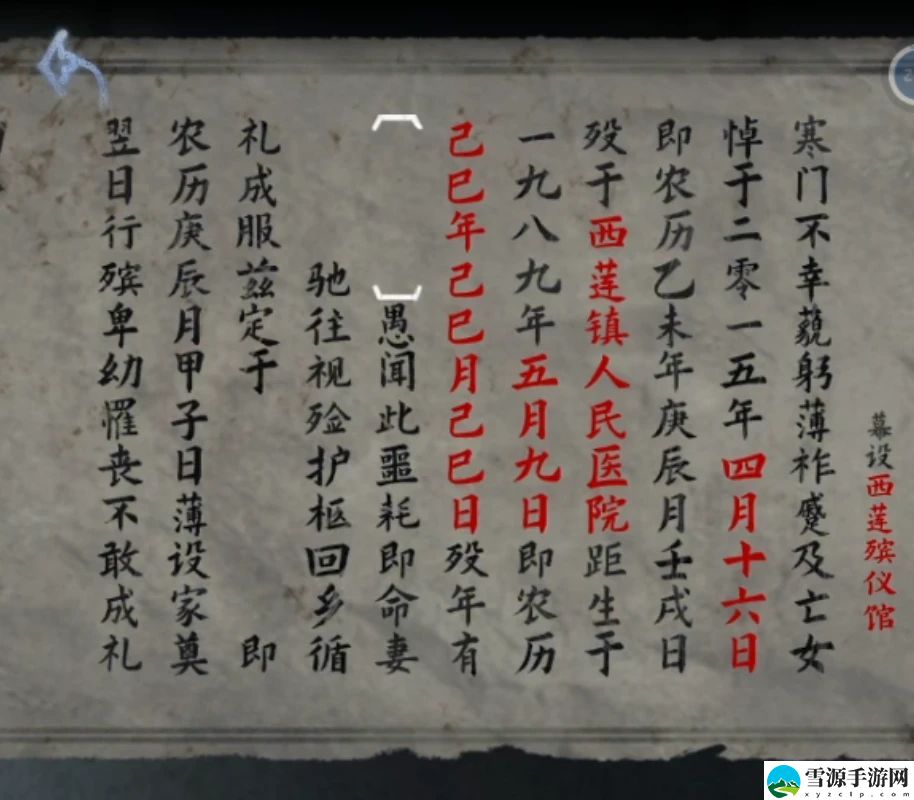 幕设西莲殡仪馆
寒门不幸藐躬薄祚蹙及亡女
悼于二零一五年四月十六日
即农历乙未年庚辰月壬戌日
殁于西莲镇人民医院距生于
一九八九年五月九日即农历
己巳年己巳月己巳日殁年有
愚闻此噩耗即命妻
驰往视殓护柩回乡循
礼成服兹定于 即
农历庚辰月甲子日薄设家奠
翌日行殡卑幼罹丧不敢成礼
雪源手游网
xyzclp.com